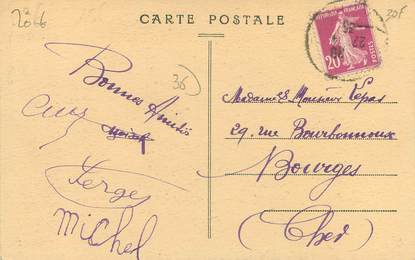 2066
CARTE POSTALE
20F
REPUBLIQUE FRANÇAISE
20c
POSTES
36
Bonnes Amitiés
Serge
Michel
Madame & Monsieur Lepas
29, rue Bourbonnoux
Bourges
(Cher)